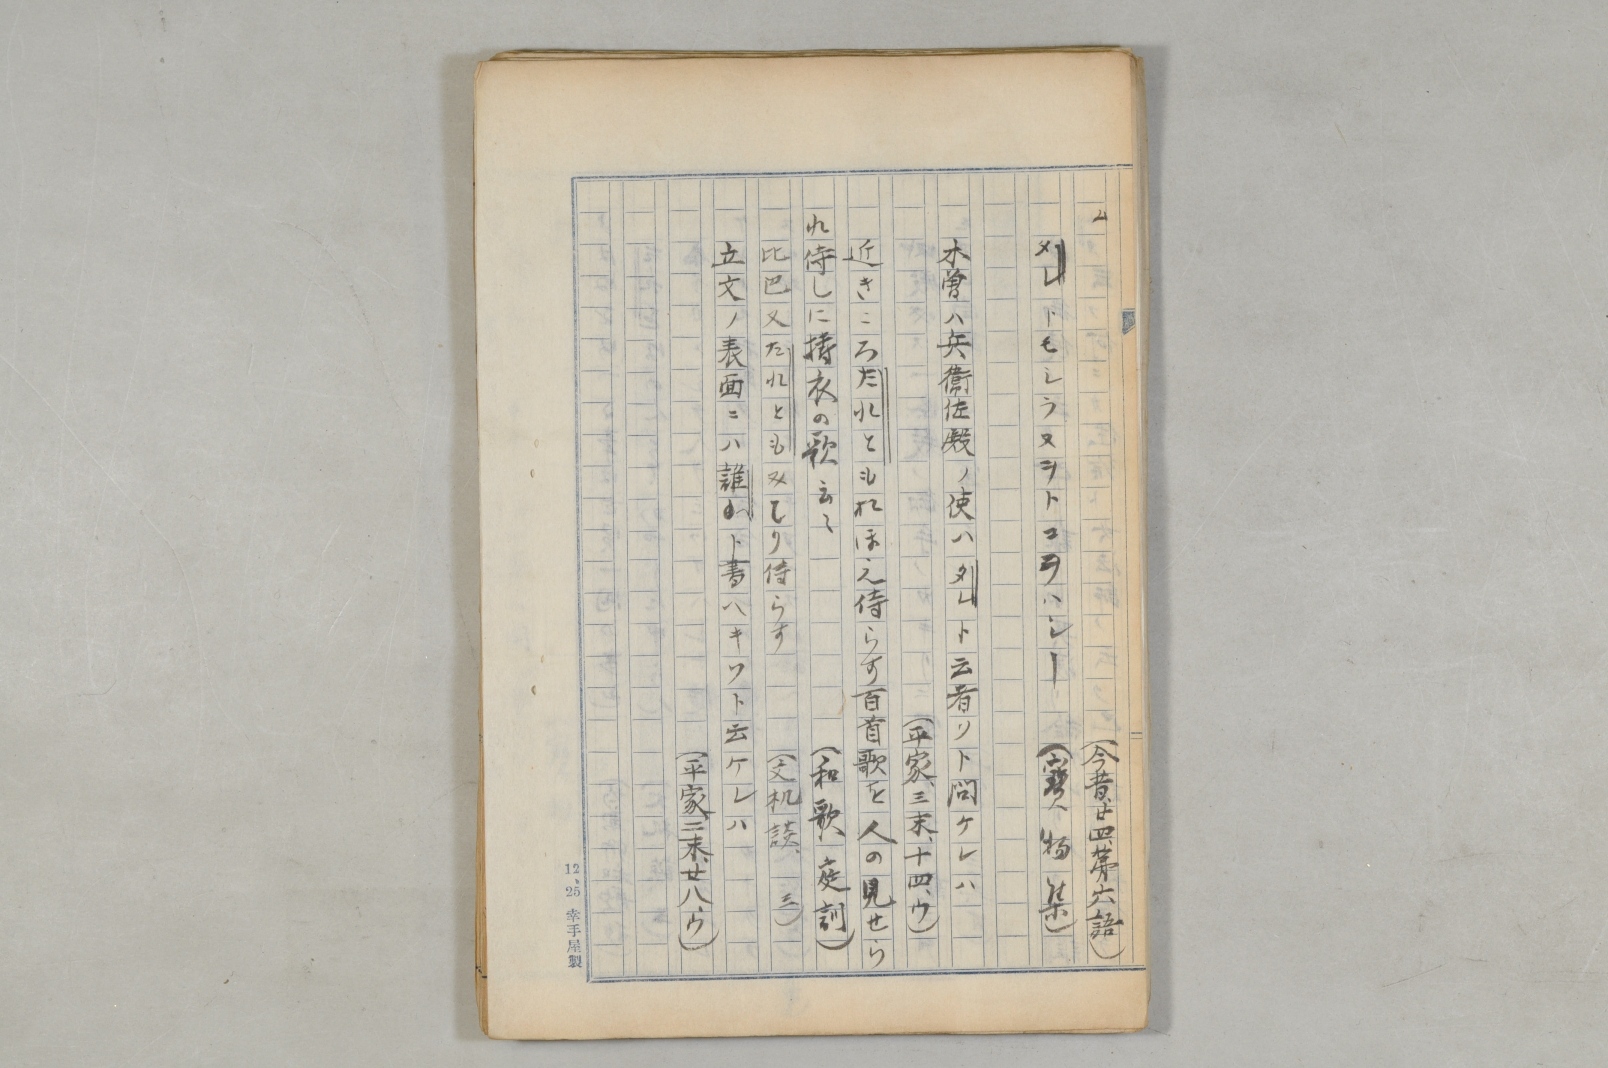 ム
（今昔、廿四、第六語）
タレトモシラヌヲトコヲハシ｜
（寶物集）
木曽ハ兵衛佐殿ノ使ハタレト云者ソト問ケレハ
（平家、三末、十四、ウ）
近きころたれともおほえ侍らす百首歌を人の見せら
れ侍しに擣衣の歌云々
（和歌庭訓）
比巴又たれともみしり侍らす
（文机談、三）
立文ノ表面ニハ誰かト書ヘキソト云ケレハ
（平家二末、廿八、ウ）
12、25 幸手屋製